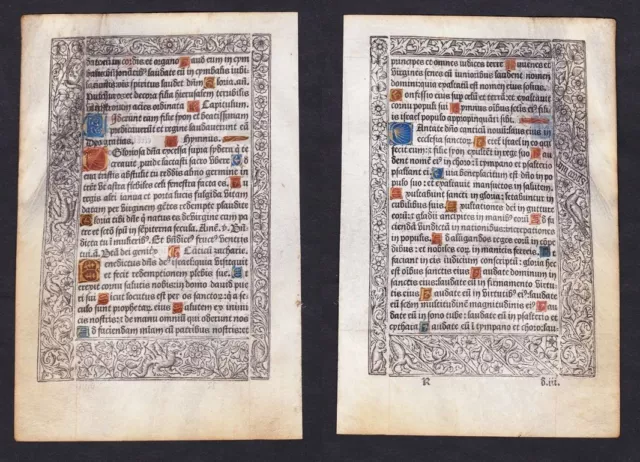 in cordis et organo Laud eum in cym
balis in cymbalis iubi
lationis spiritus laudet dñm Gloria. añ.
Pulchra es et decora filia hierusalem terribilis
acies ordinata Capitulum.
Viderunt eam filie syon et beatissimam
predicaverunt et regine laudaverunt eam
Deo gratias. Hymnus.
O Gloriosa dña excelsa supra sydera q̃ te
creavit provide lactasti sacro ubere Q
eva tristis abstulit tu reddis almo germine in
trent ut astra flebiles celi fenestra facta es. Tu
regis alti ianua et porta lucis fulgida vitam
datam per virginem gentes redempte plaudite
Gloria tibi dñe q̃ natus es de virgine cum patre
et sancto spiritu in sempiterna secula. Amē. ℣. Bñ
dicta tu ĩ mulierib⁹. Et bñdict⁹ fruct⁹ ventris
tui. añ. Bña dei genitrix Cãticũ zacharie.
Benedictus dñs de⁹ israel quia visitavit
et fecit redemptionem plebis sue Et
erexit cornu salutis nobis: in domo david pue
ri sui Sicut locutus est per os sanctor̃: q̃ a
seculo sunt prophetar̃ eius Salutem ex inimi
cis nostris: et de manu omniũ qui oderunt nos
Ad faciendam miam cũ patribus nostris: et
principes et omnes iudices terre Iuvenes et
virgines senes cũ iunioribus laudent nomen
domini: quia exaltatum est nomen eius solius.
Confessio eius sup celũ et terrã: et exaltavit
cornu populi sui Hymnus oĩbus sctis ei⁹:
filiis israel populo appropinquãti sibi.
Cantate dño canticũ novũ: laus eius in
ecclesia sanctor̃. Letet israel in eo q̃
fecit eũ: et filie syon exultẽt in rege suo Lau
dent nomẽ ei⁹ in choro: ĩ tympano et psalterio
psallãt ei Quia beneplacitum est dño in popu
lo suo: et exaltavit mansuetos in salutem.
Exultabunt sancti in gloria: letabuntur in
cubilibus suis. Exultationes dei in gutture
eor̃: et gladii ancipites in manib⁹ eor̃ Ad fa
ciendã vindictã in nationibus: increpationes
in populis. Ad alligandos reges eor̃ in cõpe
dibus: et nobiles eor̃ in manicis ferreis. Ut
faciant in eis iudicium conscriptũ: gloria hec
est oĩbus sanctis eius Laudate dñm in
sanctis eius: laudate eũ in firmamento vir
tutis eius Laudate eũ in virtutib⁹ ei⁹: laudate
eũ scdm multitudinẽ magnitudinis ei⁹ Lau
date eũ in sono tube: laudate eũ in psalterio et
cythara Laudate eũ ĩ tympano et choro: lau
R b.iii.